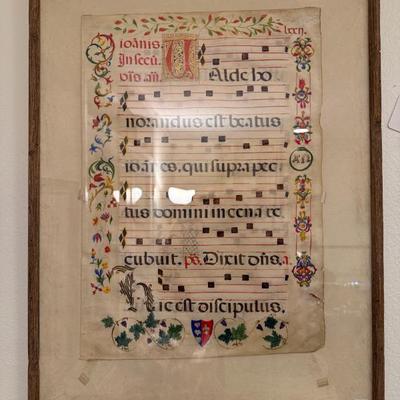 lxxij.
ioānis.
In secū
dīs añ.
Valde ho
norandus est beatus
ioānes. qui supra pec
tus domini in cena re
cubuit. ps. Dixit dñs. a.
Hic est discipulus.